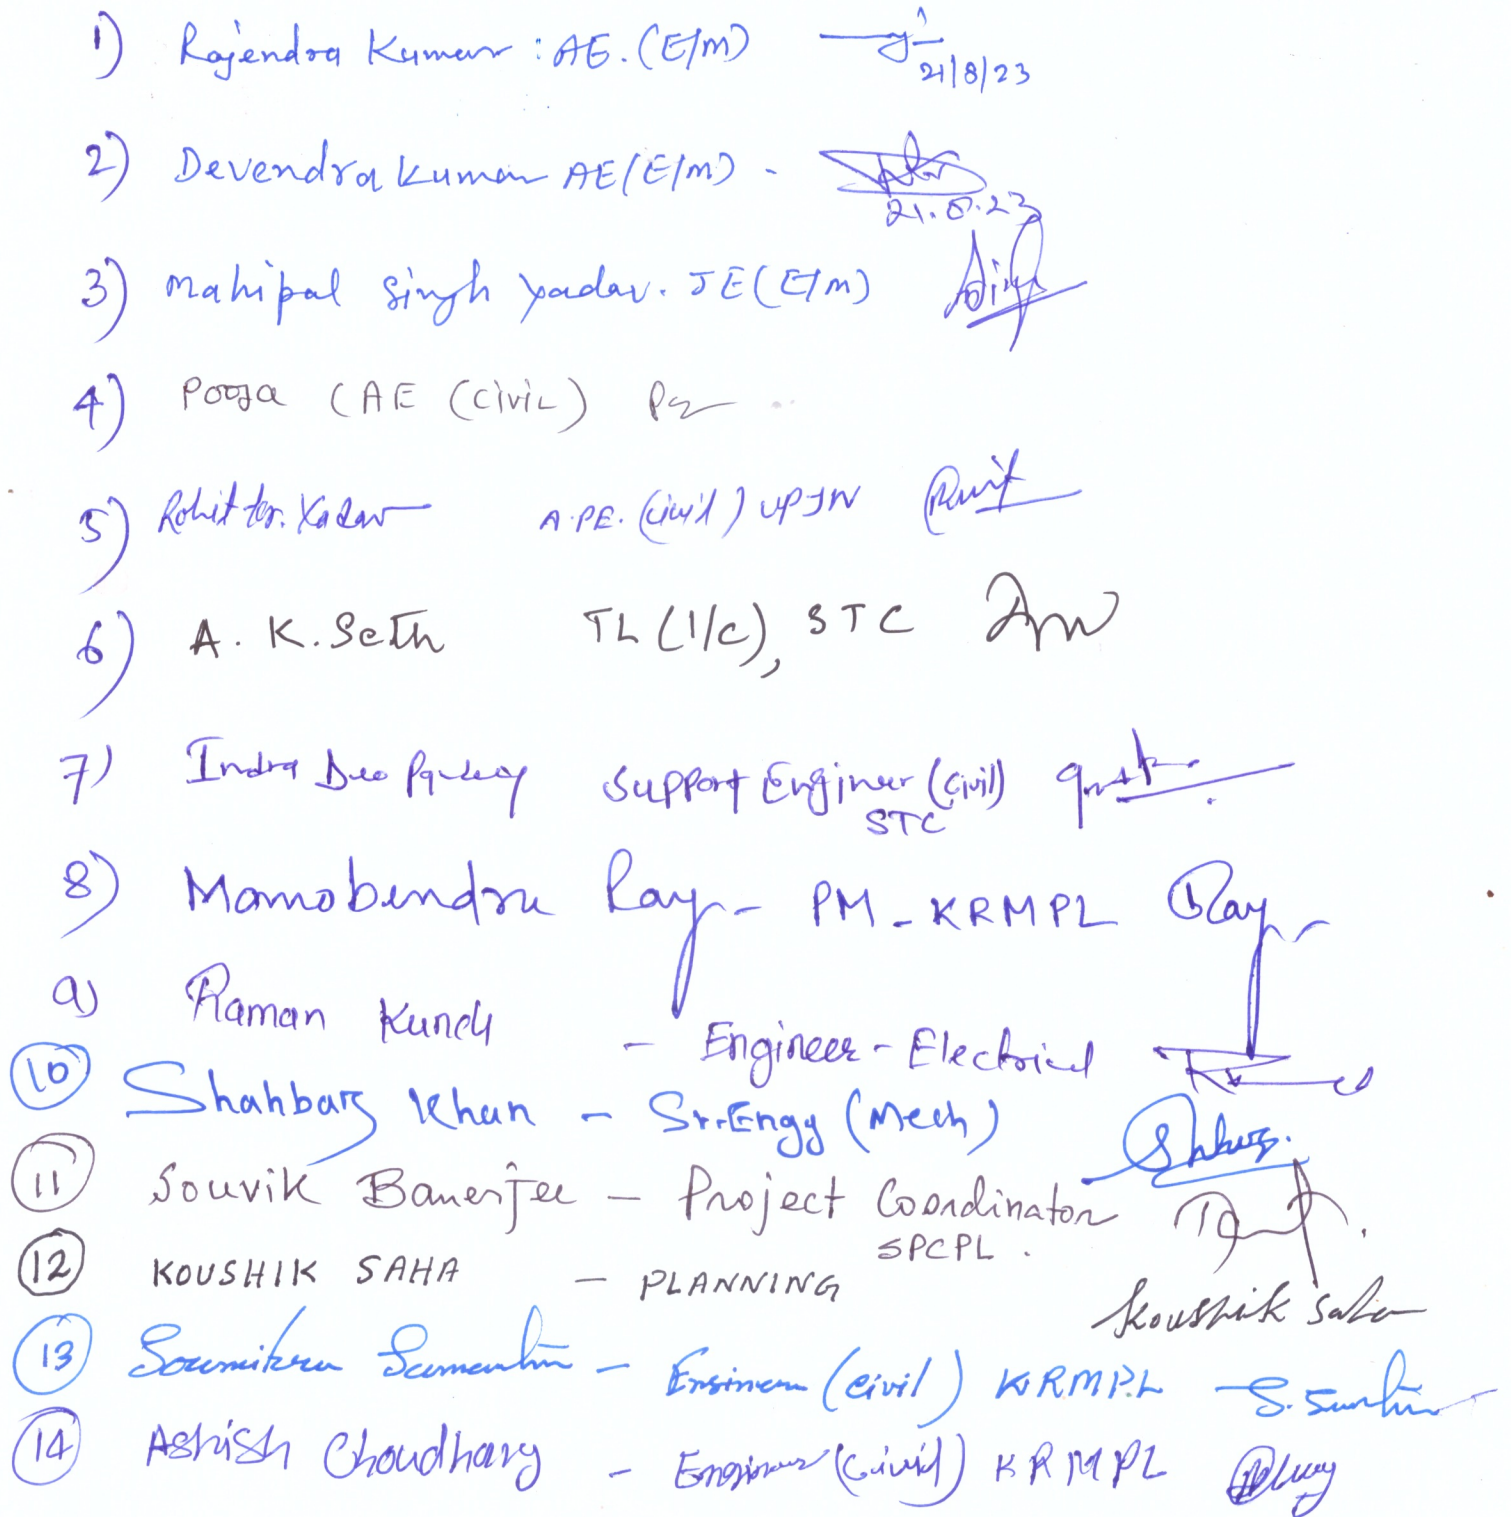 1) Rajendra Kumar : AE. (E/M)
21/8/23
2) Devendra Kumar AE (E/M) -
21.8.23
3) Mahipal Singh Yadav. JE (E/M)
4) Pooja (AE (Civil)
5) Rohit Kr. Yadav A.PE. (Civil) UPJN
6) A. K. Seth TL (I/C), STC
7) Indra Deo Pandey Support Engineer (Civil)
STC
8) Manobendra Ray - PM - KRMPL Ray
9) Raman Kundu - Engineer - Electrical
10 Shahbaz Khan - Sr. Engg (Mech)
11 Souvik Banerjee - Project Coordinator
SPCPL.
12 KOUSHIK SAHA - PLANNING Koushik Saha
13 Soumitra Samanta - Engineer (Civil) KRMPL
14 Ashish Choudhary - Engineer (Civil) KRMPL